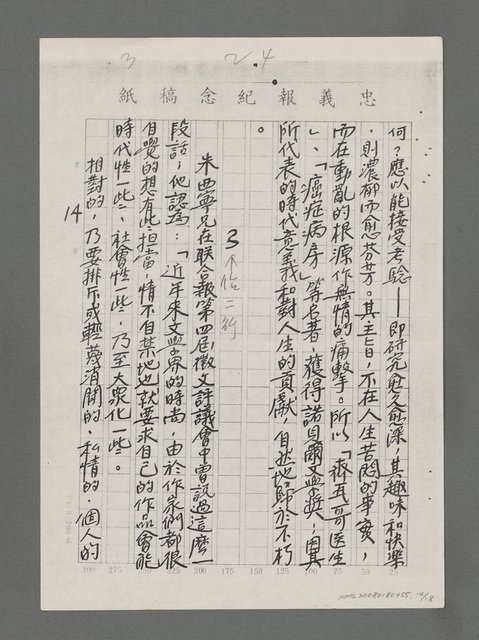 3
24
忠義報紀念稿紙
何?應以能接受考驗——即研究愈久愈深,其趣味和快樂
,則濃郁而愈芬芳。其主旨,不在人生苦悶的事實,
而在動亂的根源作無情的痛擊。所以「齊瓦哥医生
」、「癌症病房」等名著,獲得諾貝爾文學獎;因其
所代表的時代意義和對人生的貢獻,自然地歸於不朽
。
3 ↑佔二行
朱西甯兄在联合報第四屆徵文評議會中曾說過這麼一
段話,他認為:「近年來文學界的時尚,由於作家們都很
自覺的想有此担當,情不自禁地也就要求自己的作品會能
時代性一些、社會性一些,乃至大眾化一些。
相對的,乃要排斥或輕蔑消閒的、私情的、個人的
14
300 275 200 175 150 125 100 75 50 25
NMTL20080180455 14/18